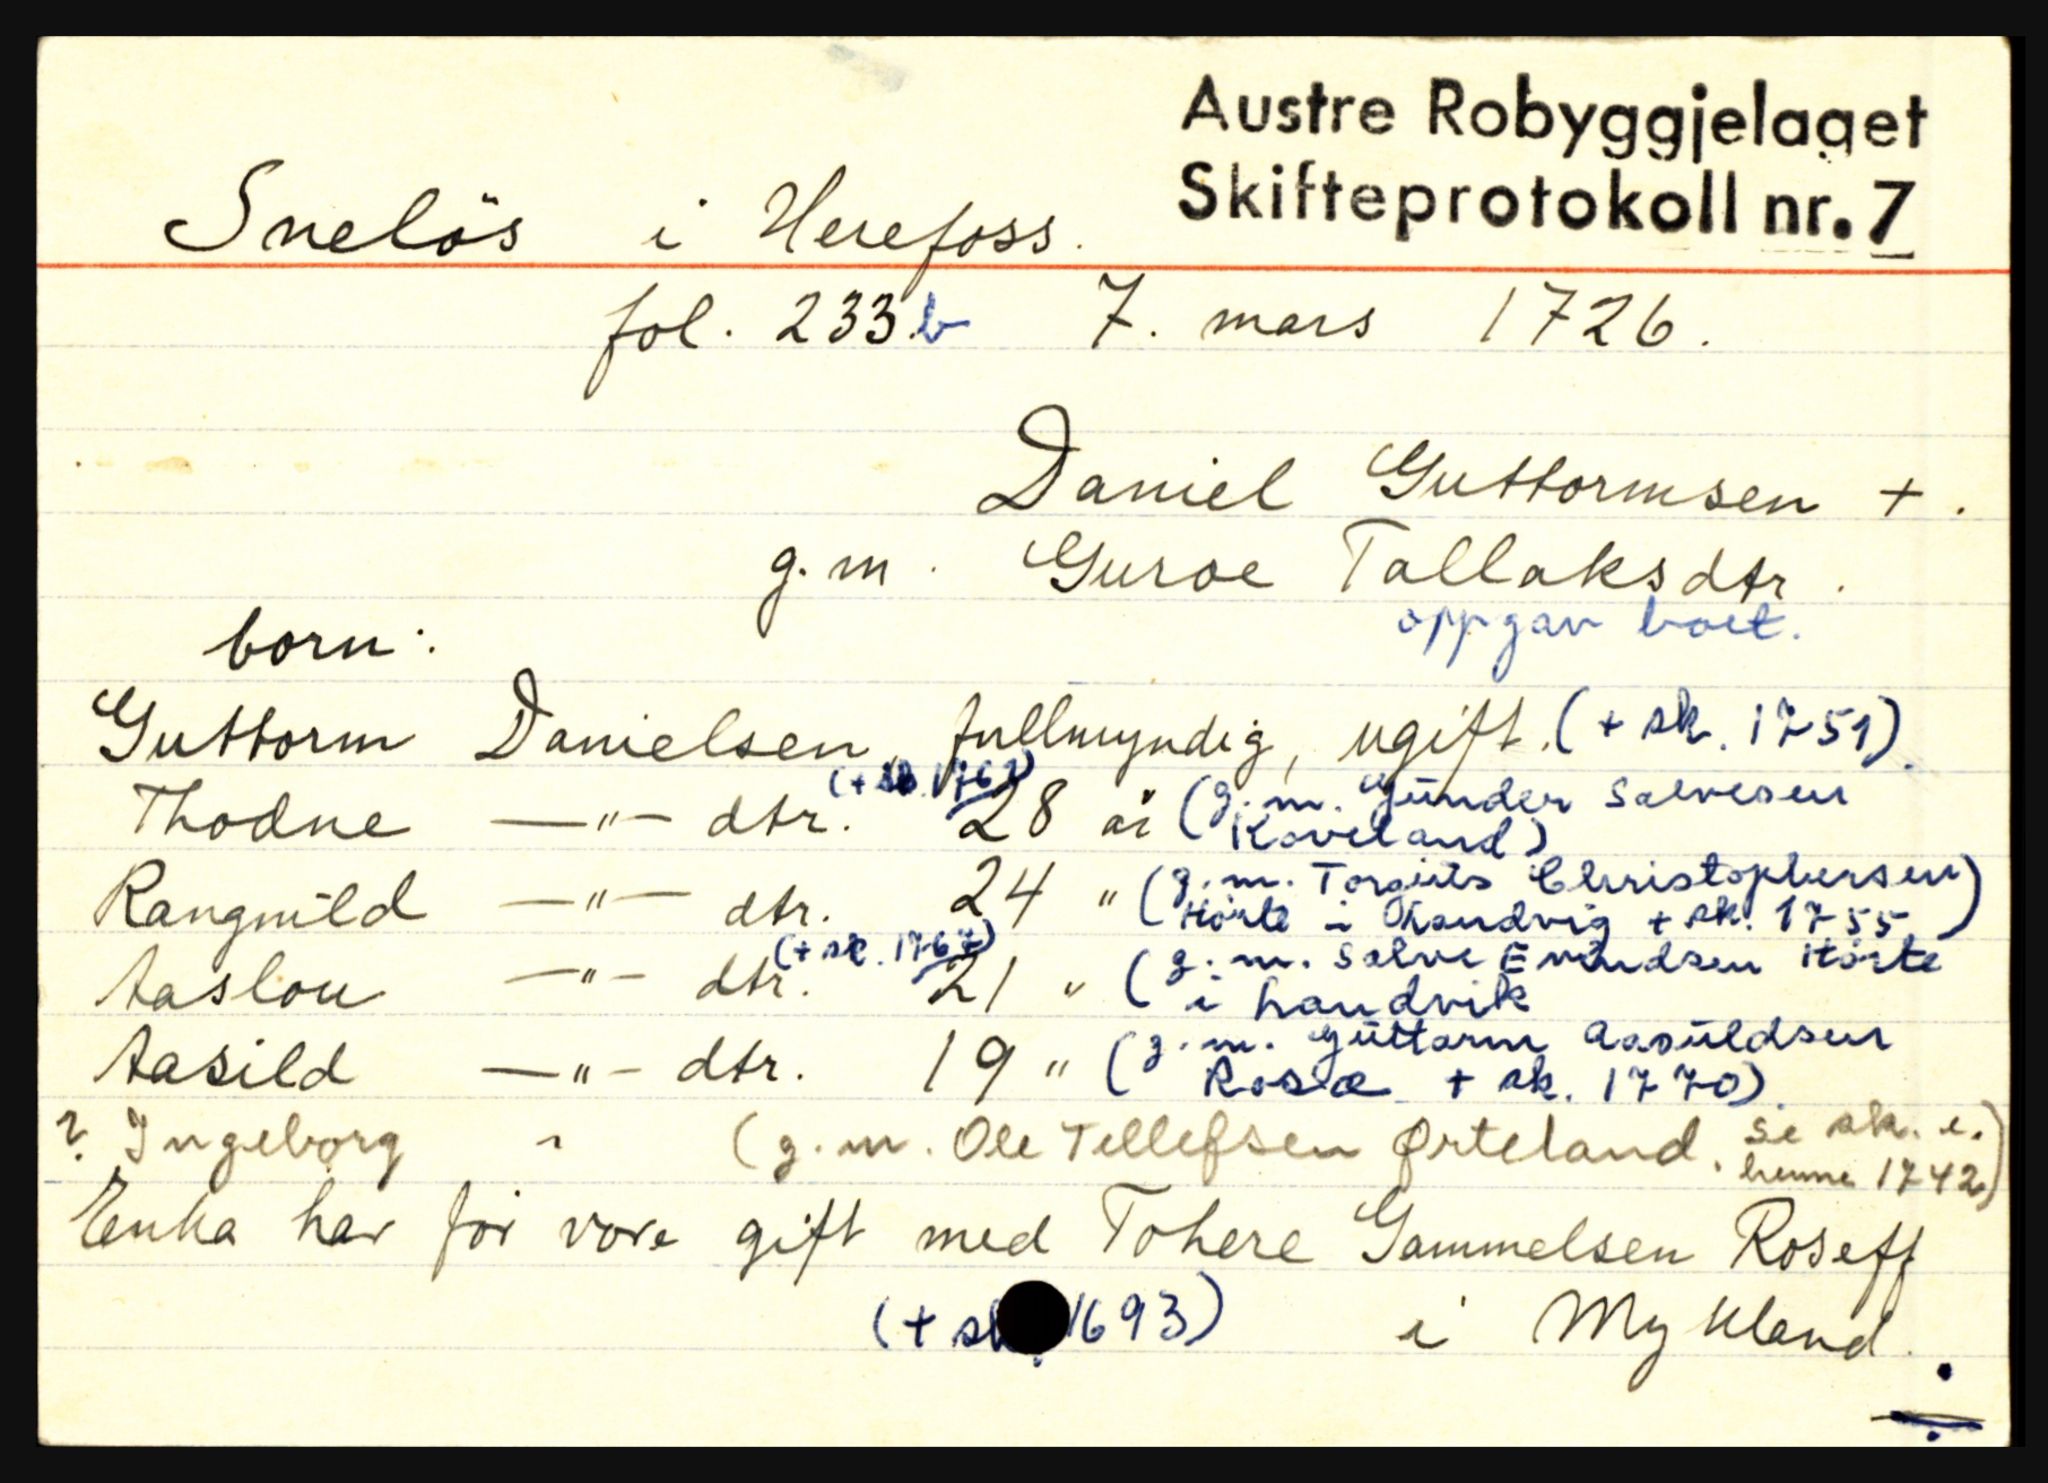 Austre Robyggjelaget
Skifteprotokoll nr. 7
Snelös i Herefoss.
fol. 233.b 7. mars 1726.
Daniel Guttormsen +.
g.m. Guroe Tallaksdtr.
oppgav boet.
born:
Guttorm Danielsen, fullmyndig, ugift. (+ sk. 1751)
(+ sk. 1767)
Thodne —"— dtr. 28 år (g.m. Gunder Salvesen
Kaveland)
Rangnild —"— dtr. 24 " (g.m. Torgius Christophersen
Hörte i Landvig + sk. 1755)
(+ sk. 1767)
Aaslou —"— dtr. 21 " (g.m. Salve Evindsen Hörte
i Landvik
Aasild —"— dtr. 19 " (g.m. Guttorm Aasuldsen
Rosæ + sk. 1770)
? Ingeborg " (g.m. Ole Tellefsen Ørteland. Se sk. e.
henne 1742)
Enka har før vore gift med Tohere Gammelsen Roseff
(+ sk. 1693) i Mykland.